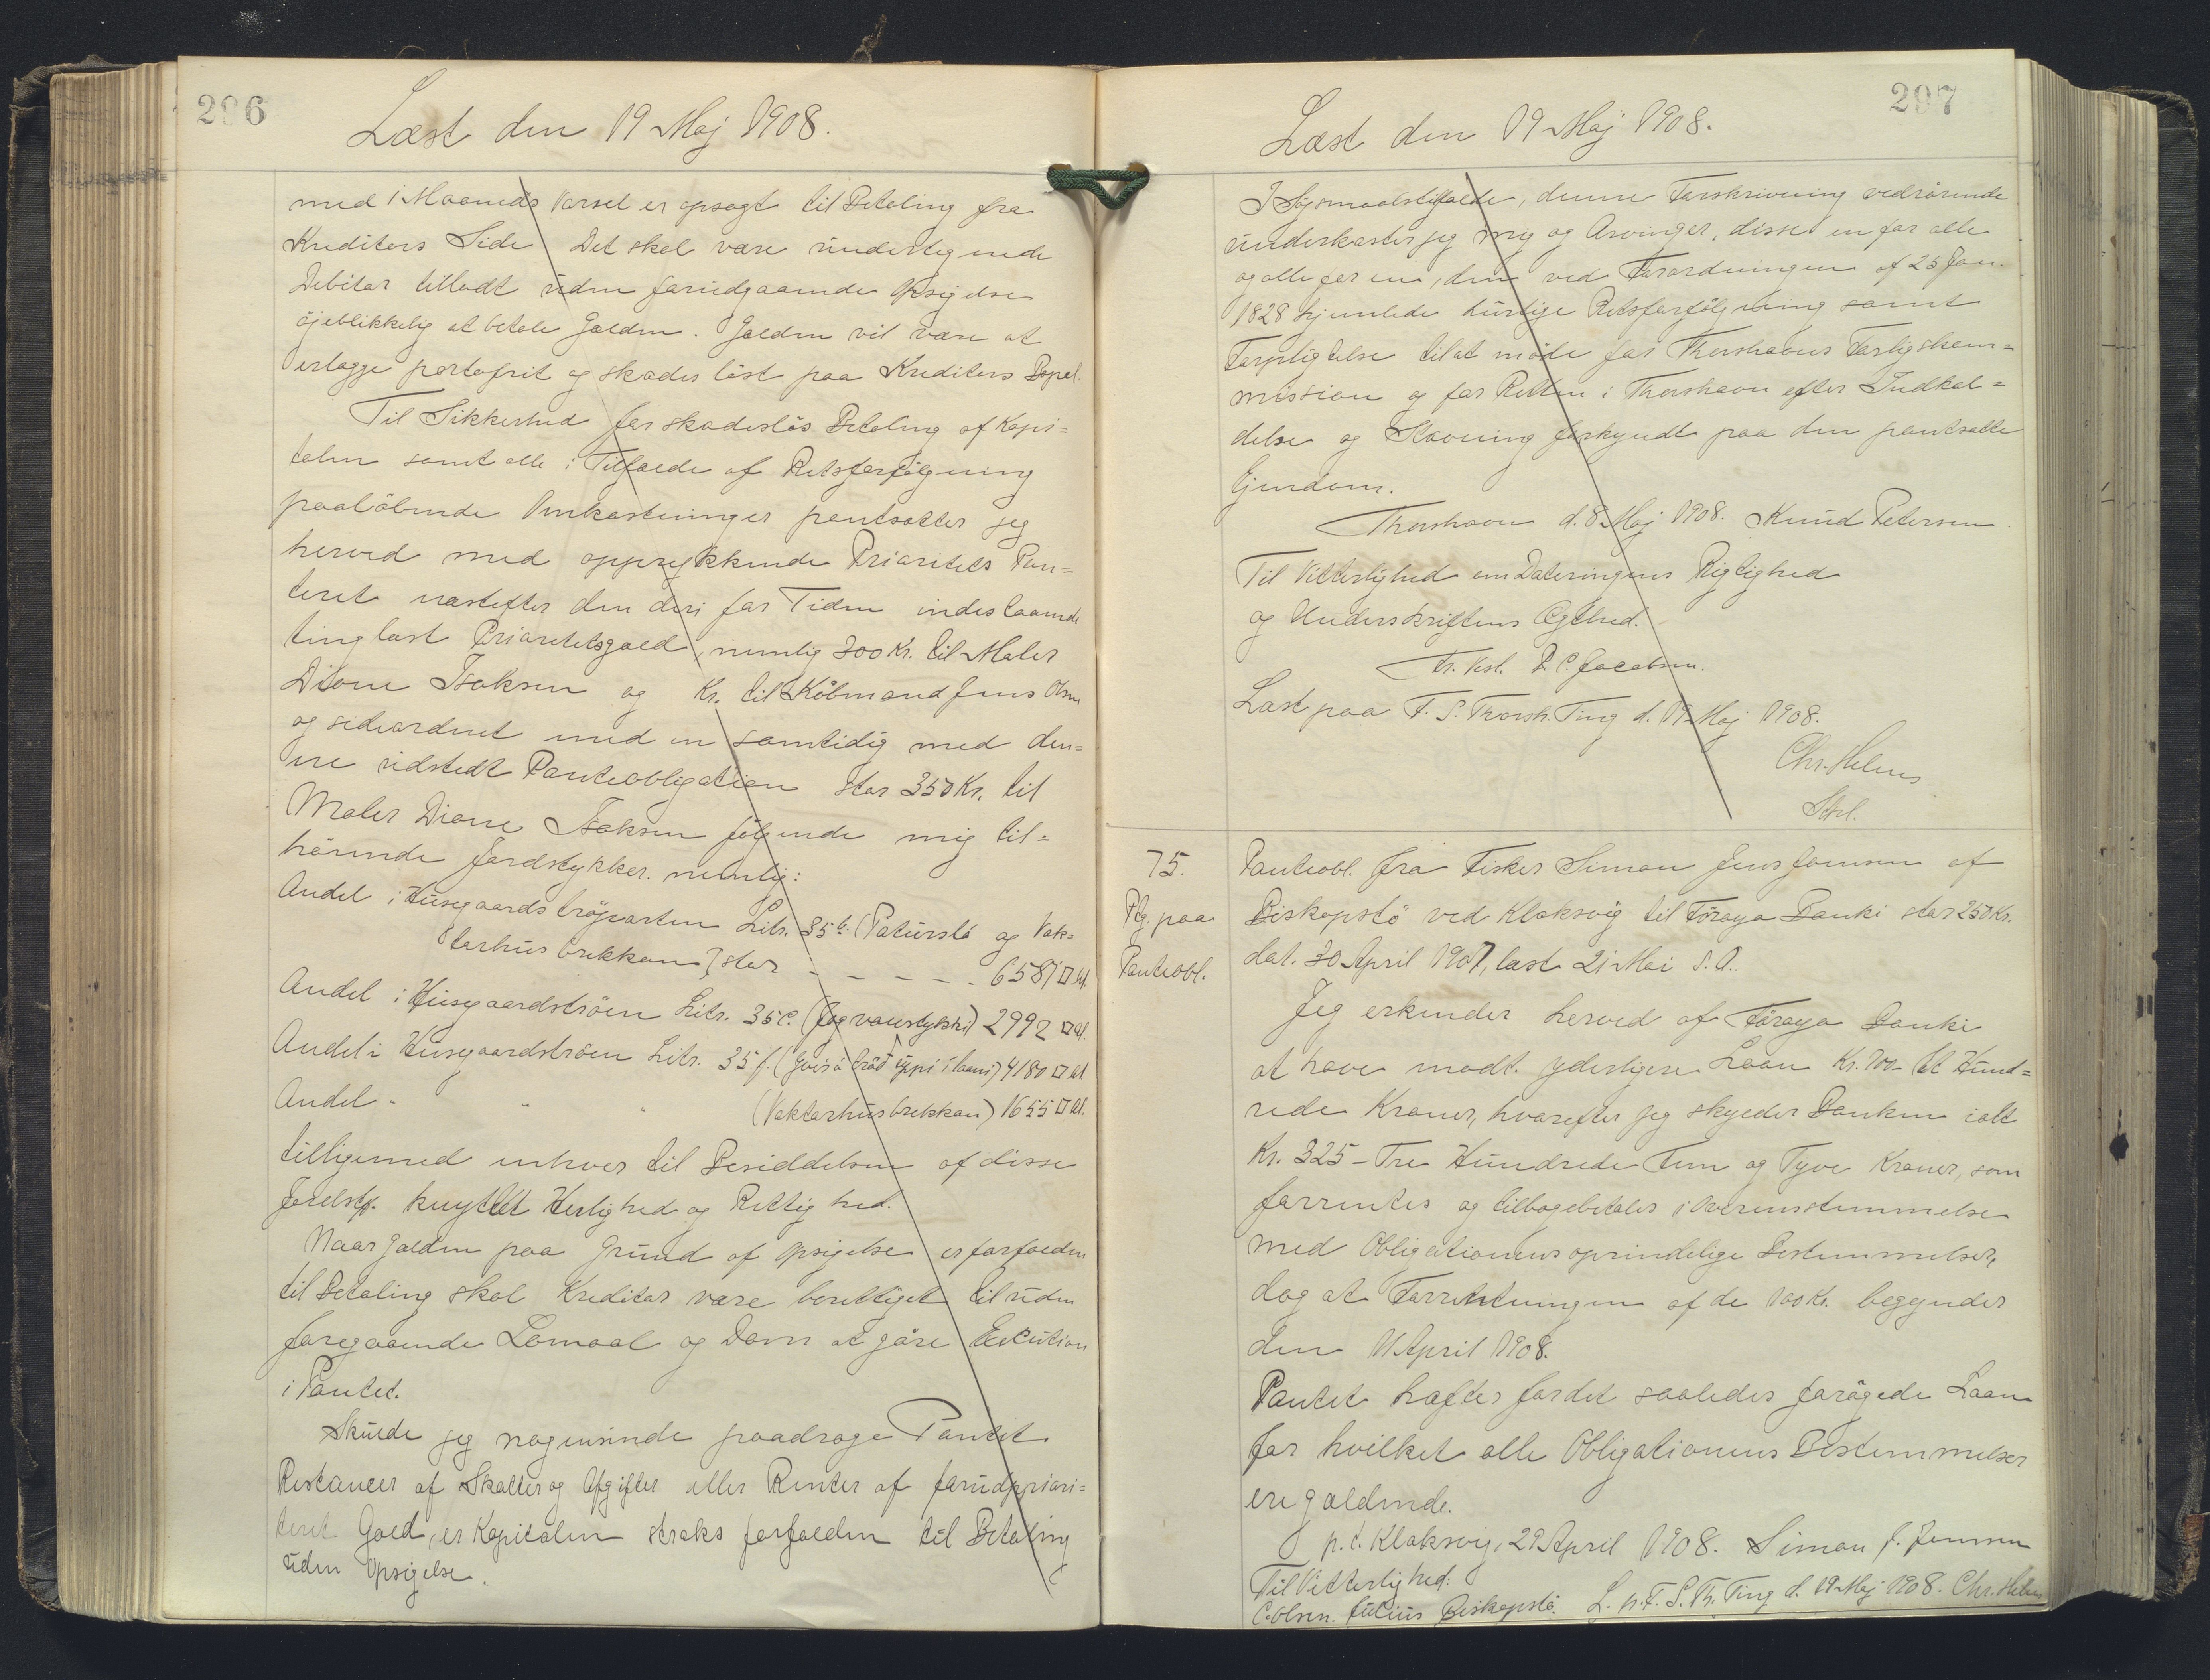 296
Læst den 19 Maj 1908.
med 1 Maaneds Varsel er opsagt til Betaling fra
Kreditors Side Det skal være undertegnede
Debitor tilladt uden forudgaaende Opsigelse
øjeblikkelig at betale Gælden. Gælden vil være at
erlægge portofrit og skadesløst paa Kreditors Bopæl.
Til Sikkerhed for skadesløs Betaling af Kapi=
talen samt alle i Tilfælde af Retsforfølgning
paaløbende Omkostninger pantsætter jeg
herved med opprykkende Prioritets Pan=
teret næstefter den deri for Tiden indestaaende
tinglæst Prioritetsgæld, nemlig 300 Kr. til Maler
Dione Isaksen og Kr. til Købmand Jens Olsen
og sideordnet med en samtidig med den=
ne udstedt Panteobligation stor 350 Kr. til
Maler Dione Isaksen følgende mig til=
hørende Jordstykker. nemlig:
Andel i Husegaardstrøparten Litr. 35 b. (Patursló og Vak=
tarhúsbrekkan) stor - - - - 6587 □ Al.
Andel i Husegaardstrøen Litr. 35 c. (Jógvanstykki) 2992 □ Al.
Andel i Husegaardstrøen Litr. 35 f. ( uppi i ) 4180 □ Al
Andel - " " (Vaktarhúsbrekkan) 1655 □ Al.
tilligemed enhver til Besiddelsen af disse
Jordstk. knyttet Herlighed og Rettighed.
Naar Gælden paa Grund af Opsigelse er forfalden
til Betaling skal Kreditor være berettiget til uden
foregaaende Lovmaal og Dom at gøre Execution
i Pantet.
Skulde jeg nogensinde paadrage Pantet
Restancer af Skatter og Afgifter eller Renter af forudpriori=
teret Gæld, er Kapitalen straks forfalden til Betaling
uden Opsigelse.
297
Læst den 19 Maj 1908.
I Søgsmaalstilfælde, denne Forskrivning vedrørende
underkaster jeg mig og Arvinger, disse en for alle
og alle for en, den ved Forordningen af 25 Jan.
1828 hjemlede hurtige Retsforfølgning samt
Forpligtelse til at møde for Thorshavns Forligskom=
mission og for Retten i Thorshavn efter Indkal=
delse og Stævning forkyndt paa den pantsatte
Ejendom.
Thorshavn d. 8 Maj 1908. Knud Petersen.
Til Vitterlighed om Dateringens Rigtighed
og Underskriftens Ægthed.
P. C. Jacobsen.
Læst paa F. S. Thorsh. Ting d. 19 Maj 1908.
Chr. Helms
Skrl.
75.
Ptg. paa
Panteobl.
Panteobl. fra Fisker Simon Jens Joensen af
Biskopstø ved Klaksvig til Föroya Banki stor 250 Kr.
dat. 30 April 1907, læst 21 Mai s. A..
Jeg erkender herved af Föroya Banki
at have modt. yderligere Laan Kr. 100 - Et Hund=
rede Kroner, hvorefter jeg skylder Banken ialt
Kr. 325 - Tre Hundrede Fem og Tyve Kroner, som
forrentes og tilbagebetales i Overensstemmelse
med Obligationens oprindelige Bestemmelser,
dog at Forrentningen af de 100 Kr. begynder
den 11 April 1908.
Pantet hæfter for det saaledes forøgede Laan
for hvilket alle Obligationens Bestemmelser
ere gældende.
p. t. Klaksvig, 29 April 1908. Simon J. Joensen
Til Vitterlighed:
C. Olsen. Julius Biskopstø. L. p. F. S. Th. Ting d. 19 Maj 1908. Chr. Helms